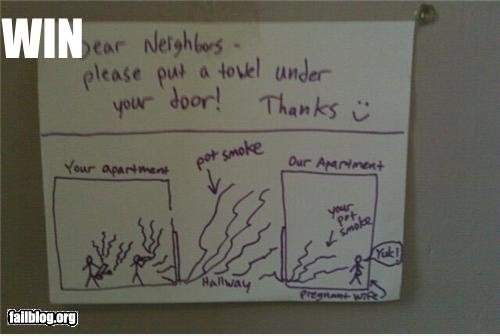 WIN
Dear Neighbors -
please put a towel under
your door! Thanks
Your apartment
pot smoke
Our Apartment
your
pot
smoke
Yuk!
Hallway
Pregnant Wife
failblog.org